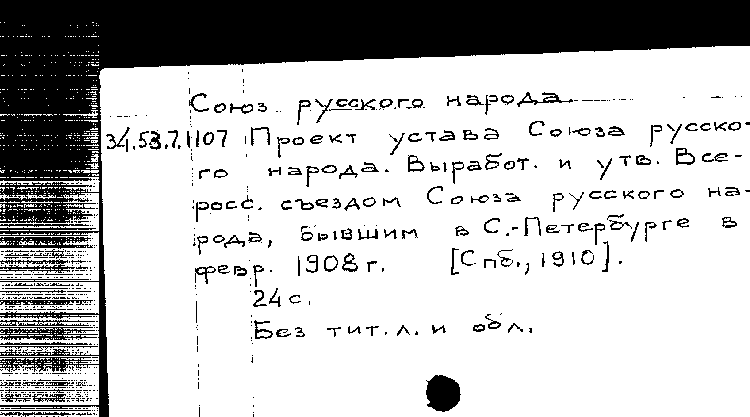 Союз русского народа.
34.53.7.1107 Проект устава Союза русско-
го народа. Выработ. и утв. Все-
росс. съездом Союза русского на-
рода, бывшим в С.-Петербурге в
февр. 1908 г. [Спб., 1910].
24 с.
Без тит. л. и обл.